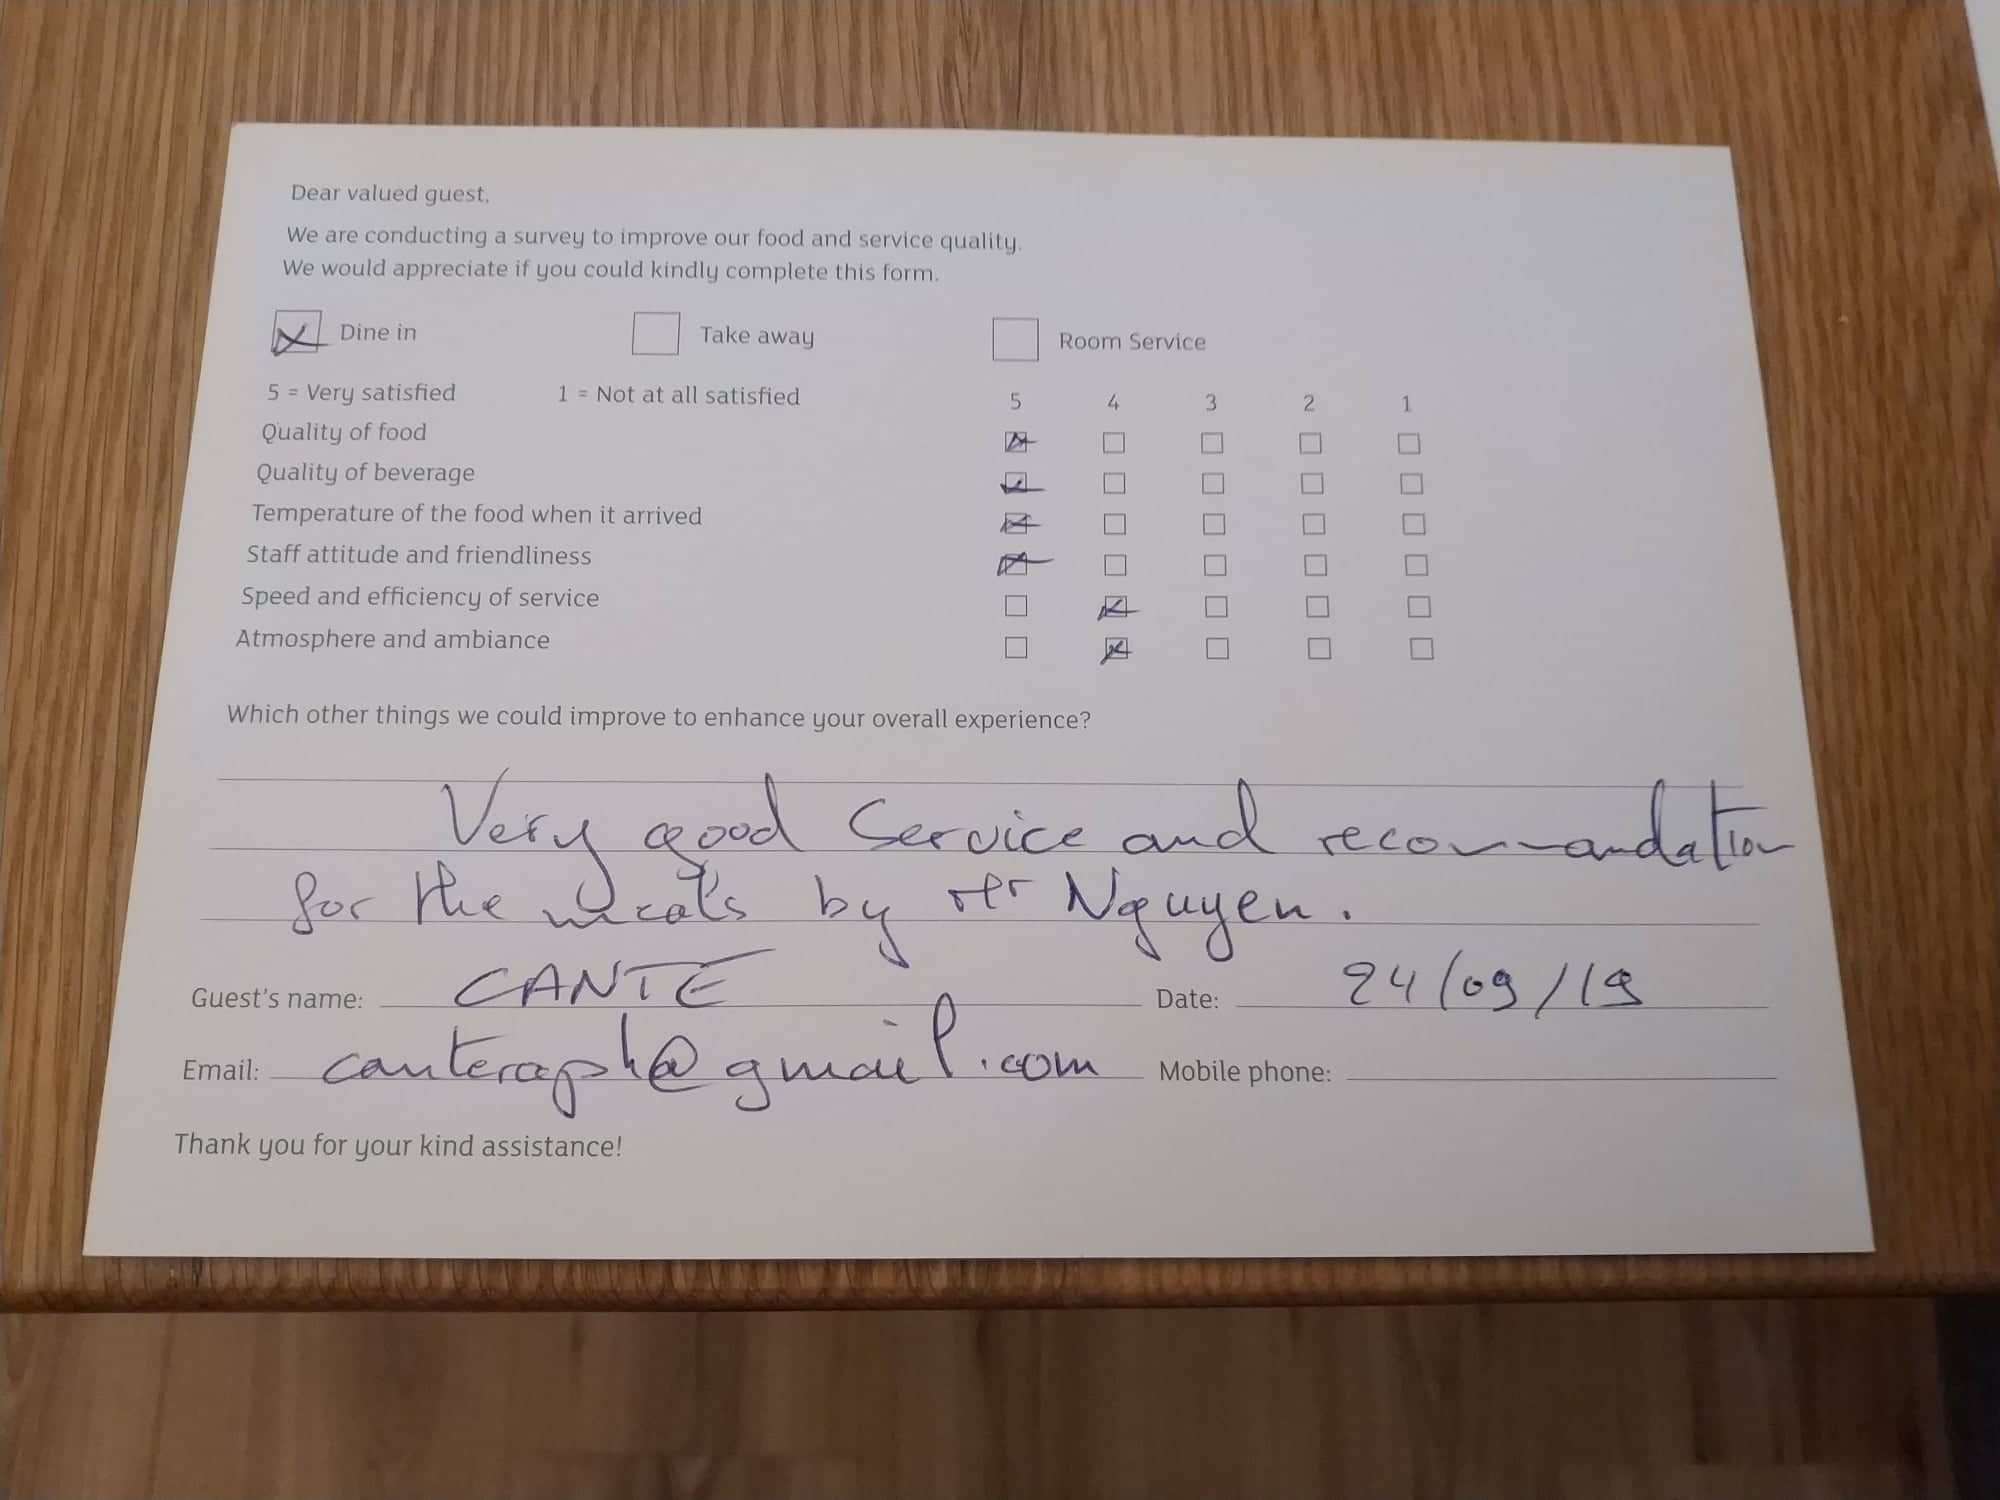 Dear valued guest,
We are conducting a survey to improve our food and service quality.
We would appreciate if you could kindly complete this form.
Dine in Take away Room Service
5 = Very satisfied 1 = Not at all satisfied 5 4 3 2 1
Quality of food
Quality of beverage
Temperature of the food when it arrived
Staff attitude and friendliness
Speed and efficiency of service
Atmosphere and ambiance
Which other things we could improve to enhance your overall experience?
Very good Service and recommandation
for the meals by Mr Nguyen.
Guest's name: CANTE Date: 24/09/19
Email: canteraph@gmail.com Mobile phone:
Thank you for your kind assistance!